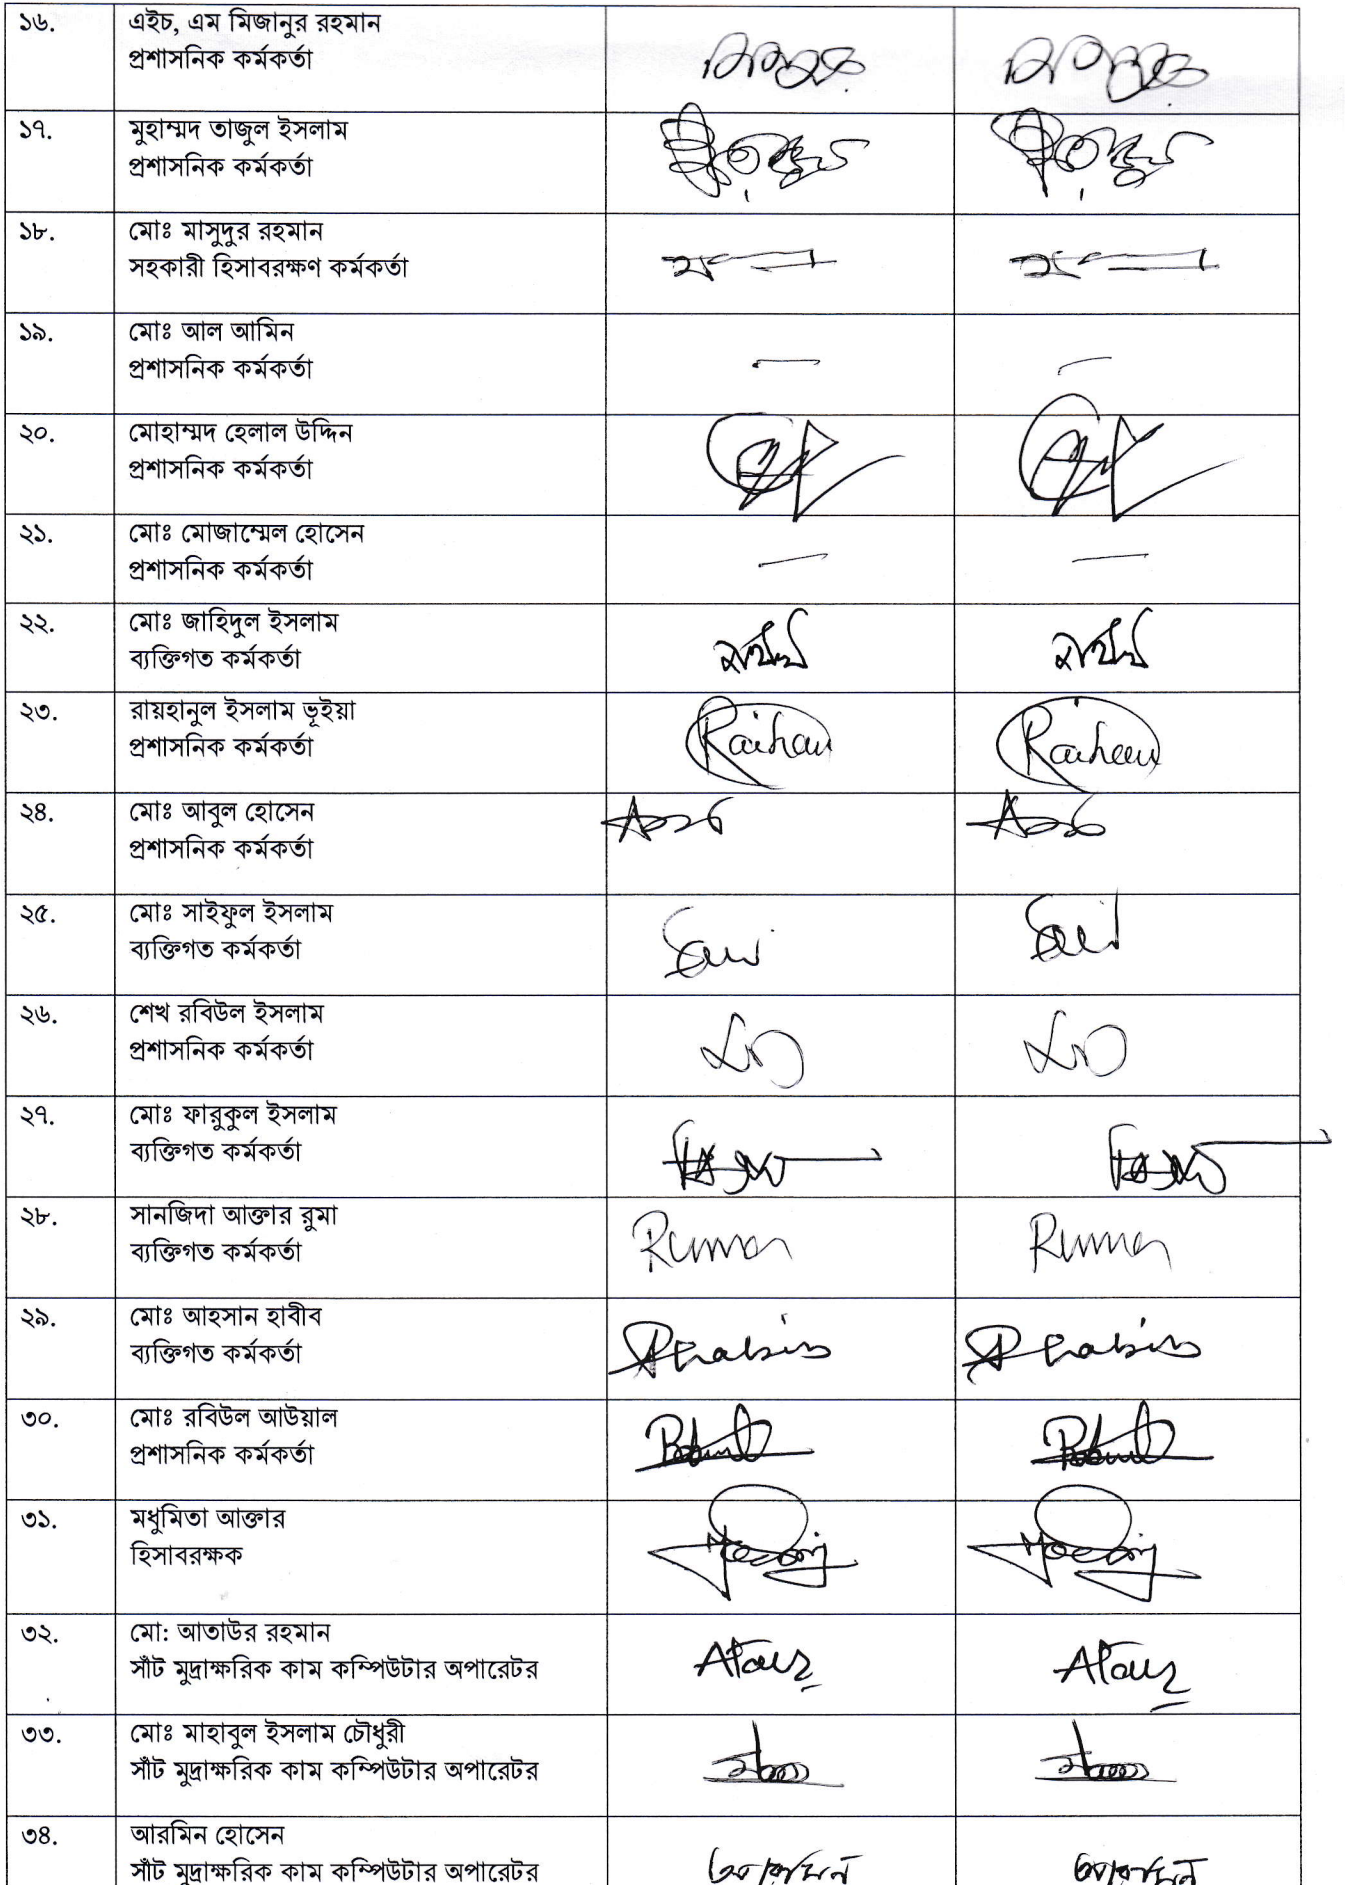 ১৬. এইচ, এম মিজানুর রহমান
প্রশাসনিক কর্মকর্তা
১৭. মুহাম্মদ তাজুল ইসলাম
প্রশাসনিক কর্মকর্তা
১৮. মোঃ মাসুদুর রহমান
সহকারী হিসাবরক্ষণ কর্মকর্তা
১৯. মোঃ আল আমিন
প্রশাসনিক কর্মকর্তা
২০. মোহাম্মদ হেলাল উদ্দিন
প্রশাসনিক কর্মকর্তা
২১. মোঃ মোজাম্মেল হোসেন
প্রশাসনিক কর্মকর্তা
২২. মোঃ জাহিদুল ইসলাম
ব্যক্তিগত কর্মকর্তা
২৩. রায়হানুল ইসলাম ভূইয়া
প্রশাসনিক কর্মকর্তা
Raihan Raihan
২৪. মোঃ আবুল হোসেন
প্রশাসনিক কর্মকর্তা
২৫. মোঃ সাইফুল ইসলাম
ব্যক্তিগত কর্মকর্তা
২৬. শেখ রবিউল ইসলাম
প্রশাসনিক কর্মকর্তা
২৭. মোঃ ফারুকুল ইসলাম
ব্যক্তিগত কর্মকর্তা
২৮. সানজিদা আক্তার রুমা
ব্যক্তিগত কর্মকর্তা
Ruma Ruma
২৯. মোঃ আহসান হাবীব
ব্যক্তিগত কর্মকর্তা
৩০. মোঃ রবিউল আউয়াল
প্রশাসনিক কর্মকর্তা
৩১. মধুমিতা আক্তার
হিসাবরক্ষক
৩২. মো: আতাউর রহমান
সাঁট মুদ্রাক্ষরিক কাম কম্পিউটার অপারেটর
Ataur Ataur
৩৩. মোঃ মাহাবুল ইসলাম চৌধুরী
সাঁট মুদ্রাক্ষরিক কাম কম্পিউটার অপারেটর
৩৪. আরমিন হোসেন
সাঁট মুদ্রাক্ষরিক কাম কম্পিউটার অপারেটর
আরমিন আরমিন